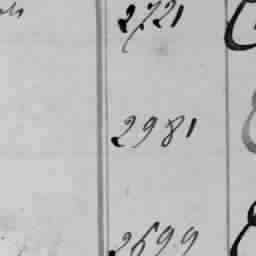 2721
2981
2699